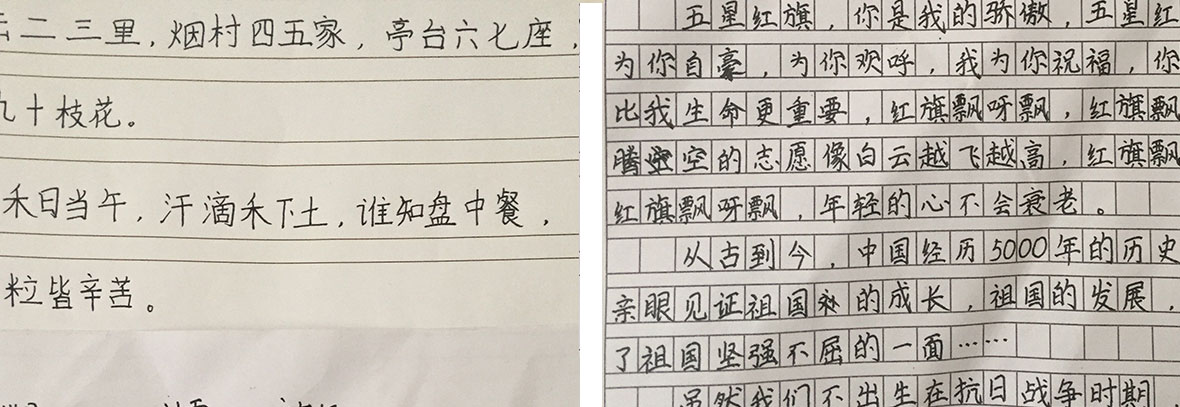 二三里，烟村四五家，亭台六七座，
九十枝花。
禾日当午，汗滴禾下土，谁知盘中餐，
粒皆辛苦。
五星红旗，你是我的骄傲，五星红
为你自豪，为你欢呼，我为你祝福，你
比我生命更重要，红旗飘呀飘，红旗飘
腾空的志愿像白云越飞越高，红旗飘
红旗飘呀飘，年轻的心不会衰老。
从古到今，中国经历5000年的历史
亲眼见证祖国的成长，祖国的发展，
了祖国坚强不屈的一面……
虽然我们不出生在抗日战争时期，